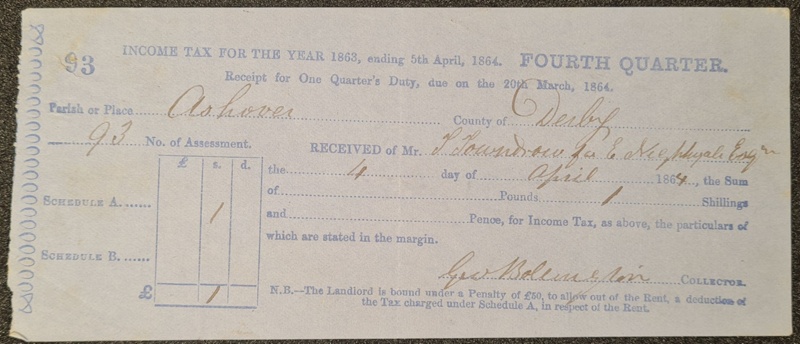 93 INCOME TAX FOR THE YEAR 1863, ending 5th April, 1864. FOURTH QUARTER.
Receipt for One Quarter's Duty, due on the 20th March, 1864.
Parish or Place Ashover County of Derby
93 No. of Assessment. RECEIVED of Mr. T Towndrow for E Nightingale Esqr
£ s. d.
the 4 day of April 1864, the Sum
of Pounds 1 Shillings
SCHEDULE A. 1
and Pence, for Income Tax, as above, the particulars of
which are stated in the margin.
SCHEDULE B.
Geo COLLECTOR.
£ 1
N.B.—The Landlord is bound under a Penalty of £50, to allow out of the Rent, a deduction of
the Tax charged under Schedule A, in respect of the Rent.